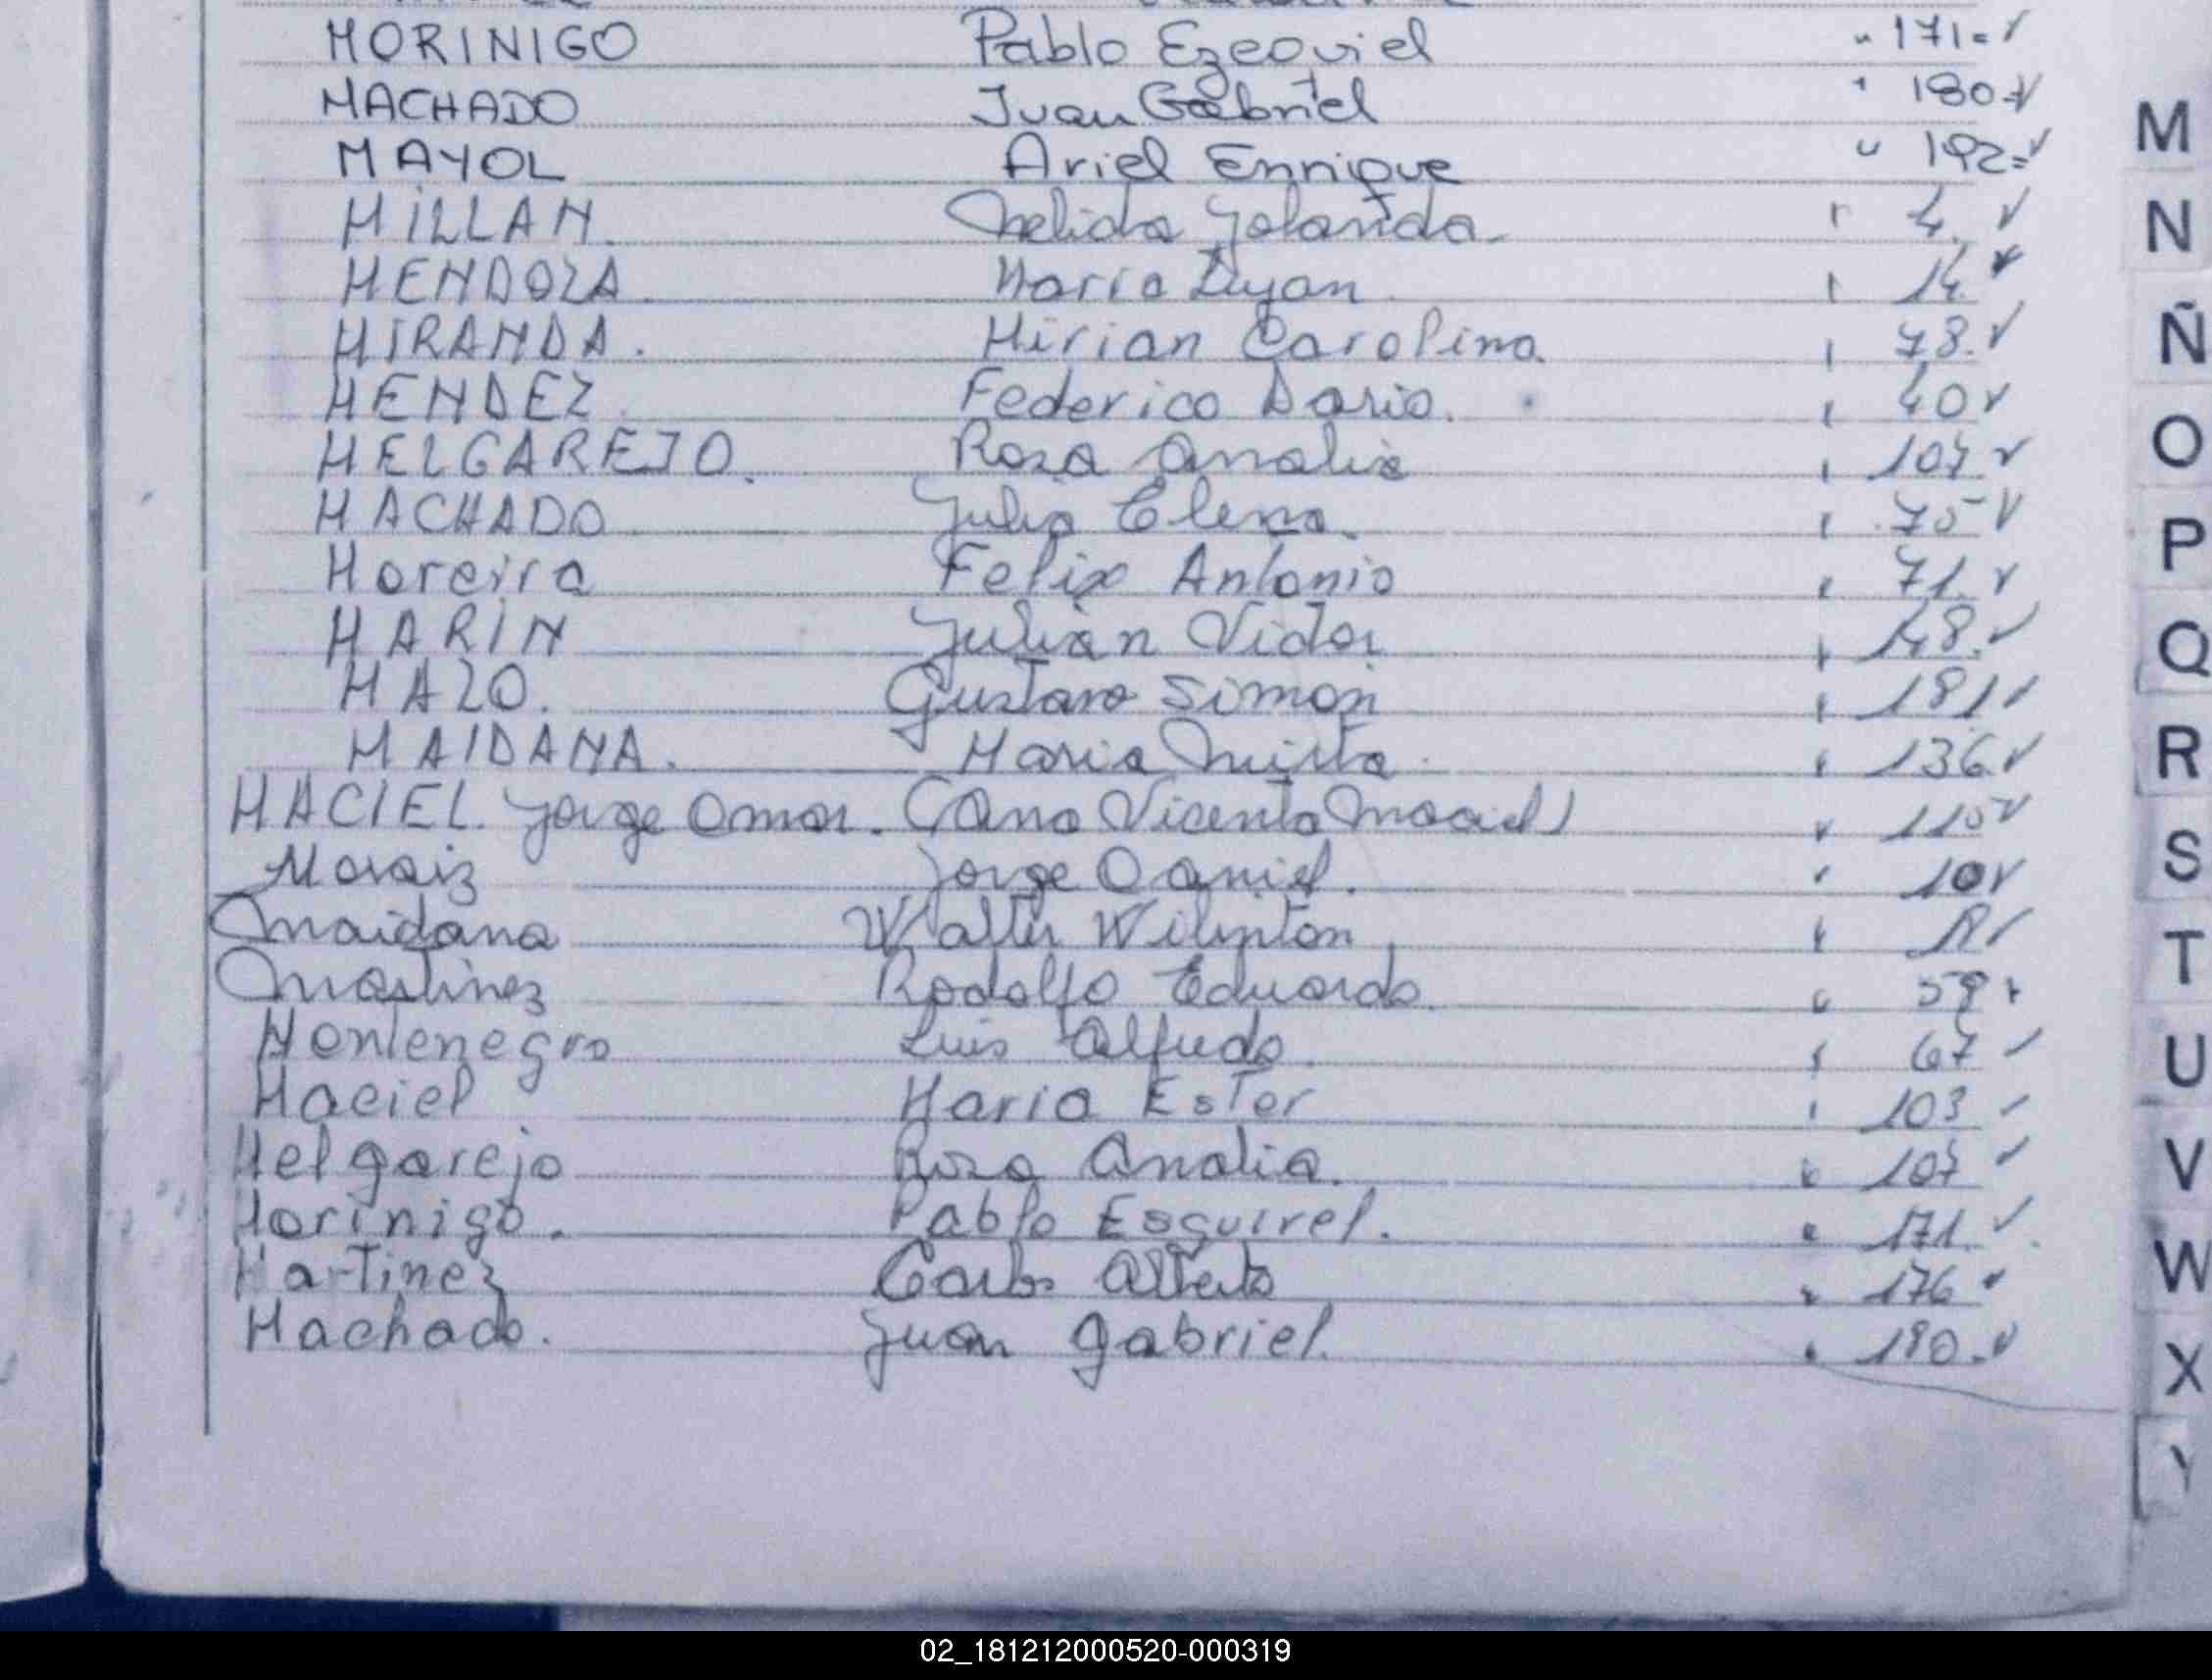 MORINIGO Pablo Ezequiel " 171=✓
MACHADO Juan Gabriel " 180=✓
MAYOL Ariel Enrique " 192=✓
MILLAN. Nelida Yolanda. " 4. ✓
MENDOZA Maria Lujan " 14. ✓
MIRANDA. Mirian Carolina. " 78. ✓
MENDEZ. Federico Dario. " 40 ✓
MELGAREJO. Rosa Analia " 107 ✓
MACHADO Julia Elena. " 75 ✓
Moreira Felix Antonio " 71. ✓
MARIN Julian Victor " 148. ✓
MAZO. Gustavo Simon " 181 ✓
MAIDANA. Maria Mirta. " 136 ✓
MACIEL. Jorge Omar. (Ana Vicenta Maciel) " 115 ✓
Moraiz Jorge Daniel. " 10 ✓
Maidana Walter " ✓
Martinez Rodolfo Eduardo. " 59 ✓
Montenegro Luis Alfredo. " 67 ✓
Maciel Maria Ester " 103 ✓
Melgarejo Rosa Analia. " 107 ✓
Morinigo. Pablo Esquivel. " 171. ✓
Martinez Carlos Alberto " 176 ✓
Machado. Juan Gabriel. " 180. ✓
M
N
Ñ
O
P
Q
R
S
T
U
V
W
X
Y
02_181212000520-000319